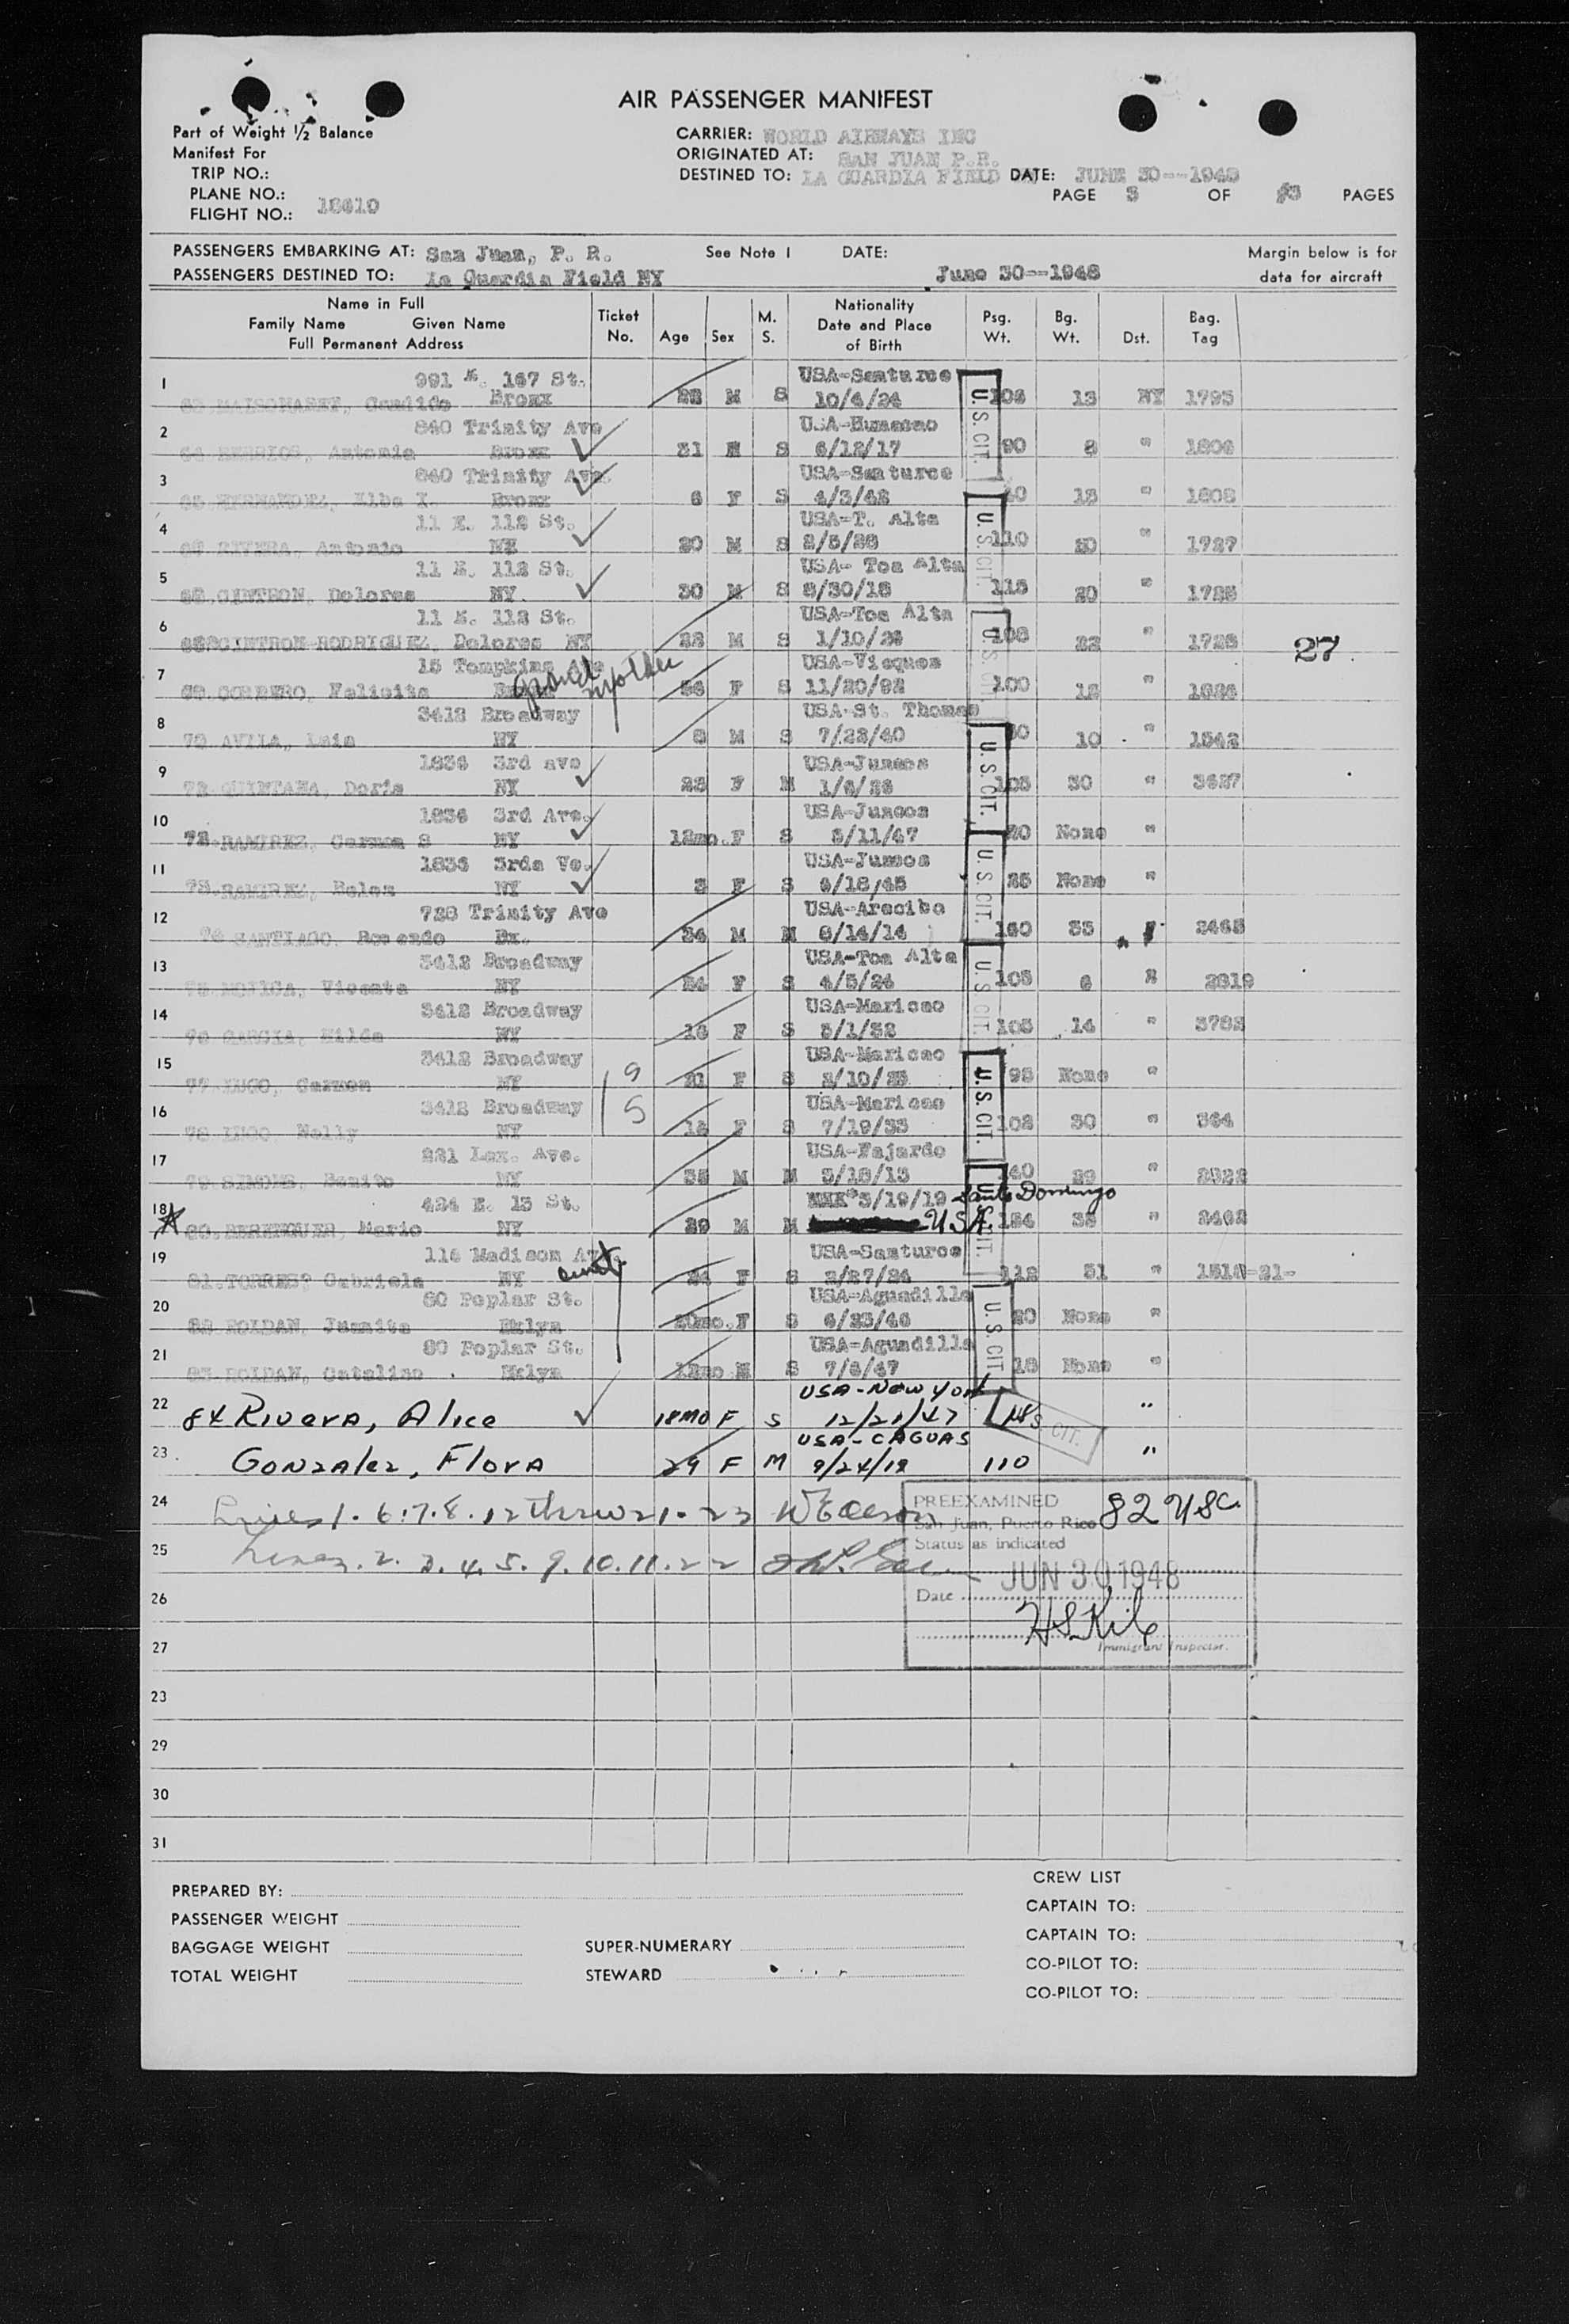 AIR PASSENGER MANIFEST
Part of Weight ½ Balance
Manifest For
TRIP NO.:
PLANE NO.:
FLIGHT NO.: 18610
CARRIER: WORLD AIRWAYS INC
ORIGINATED AT: SAN JUAN P.R.
DESTINED TO: LA GUARDIA FIELD DATE: JUNE 30--1948
PAGE 3 OF 3 PAGES
PASSENGERS EMBARKING AT: San Juan, P. R. See Note 1 DATE: Margin below is for
PASSENGERS DESTINED TO: La Guardia Field NY June 30--1948 data for aircraft
Name in Full
Family Name Given Name
Full Permanent Address
Ticket No. Age Sex M. S. Nationality Date and Place of Birth Psg. Wt. Bg. Wt. Dst. Bag. Tag
1 991 E. 167 St. USA-Santurce
Candido Bronx M S 10/4/24 13 NY 1795
2 840 Trinity Ave USA-Humacao
BERRIOS, Antonio Bronx 31 M S 6/12/17 90 8 " 1806
3 840 Trinity Ave. USA-Santurce
HERNANDEZ, Elba I. Bronx 6 F S 4/3/42 40 " 1808
4 11 E. 112 St. USA-T. Alta
RIVERA, Antonio NY 20 M S 2/5/28 110 20 " 1727
5 11 E. 112 St. USA- Toa Alta
CINTRON, Dolores NY. 30 M S 8/30/18 115 20 "
6 11 E. 112 St. USA-Toa Alta
CINTRON-RODRIGUEZ, Dolores NY M S 1/10/26 108 22 " 27
7 15 Tompkins Ave grand mother USA-Vieques
Felicita F S 11/20/92 100 "
8 3412 Broadway USA-St. Thomas
70 AVILA, Luis NY 8 M S 7/23/40 10 " 1542
9 1836 3rd ave USA-Juncos
QUINTANA, Doris NY F M 1/6/26 105 30 " 3627
10 1836 3rd Ave. USA-Juncos
72. RAMIREZ, Carmen S NY 12mo. F S 5/11/47 20 None "
11 1836 3rda Ve. USA-Juncos
73. RAMIREZ, Belen NY 3 F S 6/18/45 25 None "
12 728 Trinity Ave USA-Arecibo
SANTIAGO, Rosendo Bx. 34 M M 8/14/14 160 33 " 2465
13 3412 Broadway USA-Toa Alta
75 MOJICA, Vicenta NY 24 F S 4/5/24 105 6 " 2819
14 3412 Broadway USA-Maricao
76 GARCIA, Hilda NY 16 F S 5/1/32 105 14 "
15 3412 Broadway 9 USA-Maricao
77 LUGO, Carmen NY 21 F S 95 None "
16 3412 Broadway 5 USA-Maricao
78 LUGO, Nelly NY F S 7/19/33 102 30 " 364
17 221 Lex. Ave. USA-Fajardo
79 Benito NY 35 M M 3/18/13 140 29 " 2322
18 424 E. 13 St. 3/19/19 Santo Domingo
80. BERENGUER, Mario NY 29 M M USA. 154 38 " 2462
19 114 Madison Ave. USA-Santurce
81. TORRES? Gabriela NY aunt 24 F S 2/27/24 112 31 "
20 80 Poplar St. USA-Aguadilla
82 ROLDAN, Juanita Bklyn 20mo. F S 20 None "
21 80 Poplar St. USA-Aguadilla
83. ROLDAN, Catalino Bklyn M S 7/6/47 18 None "
U.S. CIT.
U.S. CIT.
U.S. CIT.
U.S. CIT.
U.S. CIT.
U.S. CIT.
U.S. CIT.
U.S. CIT.
U.S. CIT.
22 USA-New York
84 Rivera, Alice 18MO F S 12/21/47 U.S. CIT. "
23. USA-CAGUAS
Gonzalez, Flora 29 F M 9/24/18 110 "
24 Lines 1. 6. 7. 8. 12 thru 21. 23
25 Lines. 2. 3. 4. 5. 9. 10. 11. 22
PREEXAMINED 82 USC.
San Juan, Puerto Rico
Status as indicated
Date JUN 30 1948
Immigrant Inspector.
26
27
23
29
30
31
PREPARED BY: CREW LIST
PASSENGER WEIGHT CAPTAIN TO:
BAGGAGE WEIGHT SUPER-NUMERARY CAPTAIN TO:
TOTAL WEIGHT STEWARD CO-PILOT TO:
CO-PILOT TO: